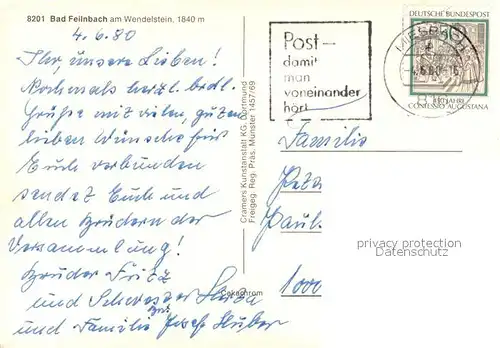 8201 Bad Feilnbach am Wendelstein, 1840 m
4.6.80
Ihr, unsere Lieben!
Nochmals herzl. brdl.
Grüße mit vielen, guten
lieben Wünsche für
Euch verbunden
sendet Euch und
allen Brüdern der
Versammlung!
Bruder Fritz
und Schwester Luisa
und Familie Josef Huber
Cramers Kunstanstalt KG, Dortmund
Freigeg. Reg. Präs. Münster 1457/69
Cekachrom
Post –
damit
man
voneinander
hört
MIESBACH
4.6.80
DEUTSCHE BUNDESPOST
450 JAHRE
CONFESSIO AUGUSTANA
Familie
Peta
Paul
1000
privacy protection
Datenschutz